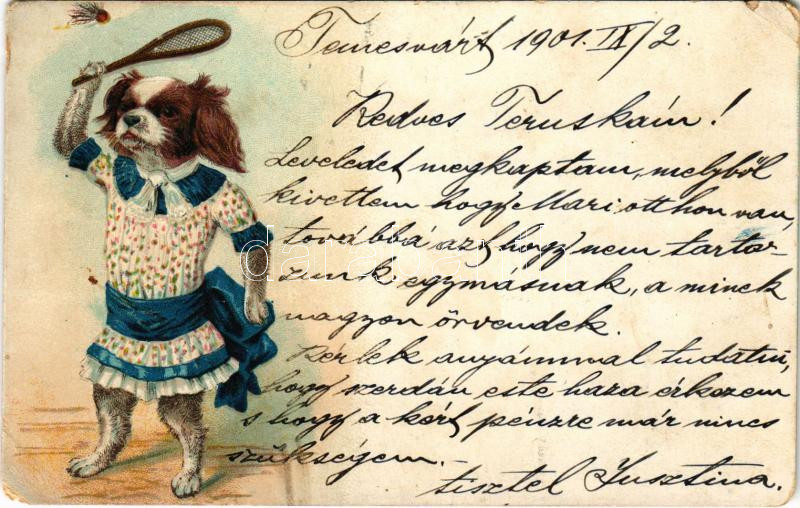 Temesvárt 1901. IX/2.
Kedves Teruskám!
Leveledet megkaptam, melyből
kivettem hogy Mari otthon van,
továbbá azt, hogy nem tarto-
zunk egymásnak, a minek
nagyon örvendek.
Kérlek anyámmal tudatni,
hogy szerdán este haza érkezem
s hogy a kért pénzre már nincs
szükségem.-
tisztel Jusztina.